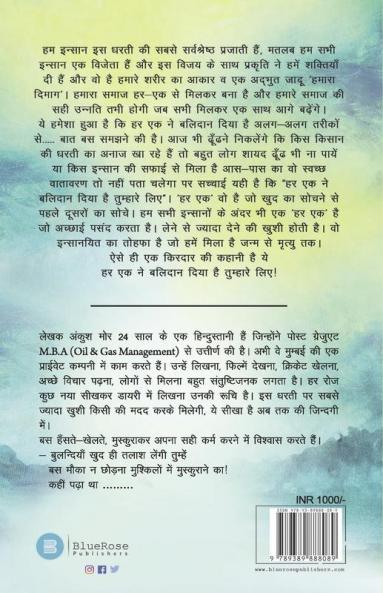 हम इन्सान इस धरती की सबसे सर्वश्रेष्ठ प्रजाती हैं, मतलब हम सभी
इन्सान एक विजेता हैं और इस विजय के साथ प्रकृति ने हमें शक्तियाँ
दी हैं और वो है हमारे शरीर का आकार व एक अद्भुत जादू 'हमारा
दिमाग'। हमारा समाज हर-एक से मिलकर बना है और हमारे समाज की
सही उन्नति तभी होगी जब सभी मिलकर एक साथ आगे बढ़ेंगे।
ये हमेशा हुआ है कि हर एक ने बलिदान दिया है अलग-अलग तरीकों
से..... बात बस समझने की है। आज भी ढूँढने निकलेंगे कि किस किसान
की धरती का अनाज खा रहे हैं तो बहुत लोग शायद ढूँढ भी ना पायें
या किस इन्सान की सफाई से मिला है आस-पास का वो स्वच्छ
वातावरण तो नहीं पता चलेगा पर सच्चाई यही है कि "हर एक ने
बलिदान दिया है तुम्हारे लिए"। 'हर एक' वो है जो खुद का सोचने से
पहले दूसरों का सोचे। हम सभी इन्सानों के अंदर भी एक 'हर एक' है
जो अच्छाई पसंद करता है। लेने से ज्यादा देने की खुशी होती है। वो
इन्सानयित का तोहफा है जो हमें मिला है जन्म से मृत्यु तक।
ऐसे ही एक किरदार की कहानी है ये
हर एक ने बलिदान दिया है तुम्हारे लिए!
लेखक अंकुश मोर 24 साल के एक हिन्दुस्तानी हैं जिन्होंने पोस्ट ग्रेजुएट
M.B.A (Oil & Gas Management) से उत्तीर्ण की है। अभी वे मुम्बई की एक
प्राईवेट कम्पनी में काम करते हैं। उन्हें लिखना, फिल्में देखना, क्रिकेट खेलना,
अच्छे विचार पढ़ना, लोगों से मिलना बहुत संतुष्टिजनक लगता है। हर रोज
कुछ नया सीखकर डायरी में लिखना उनकी रूचि है। इस धरती पर सबसे
ज्यादा खुशी किसी की मदद करके मिलेगी, ये सीखा है अब तक की जिन्दगी
में।
बस हँसते-खेलते, मुस्कुराकर अपना सही कर्म करने में विश्वास करते हैं।
– बुलन्दियाँ खुद ही तलाश लेंगी तुम्हें
बस मौका न छोड़ना मुश्किलों में मुस्कुराने का!
कहीं पढ़ा था .........
INR 1000/-
B BlueRose
Publishers
9 789389 888089
www.bluerosepublishers.com